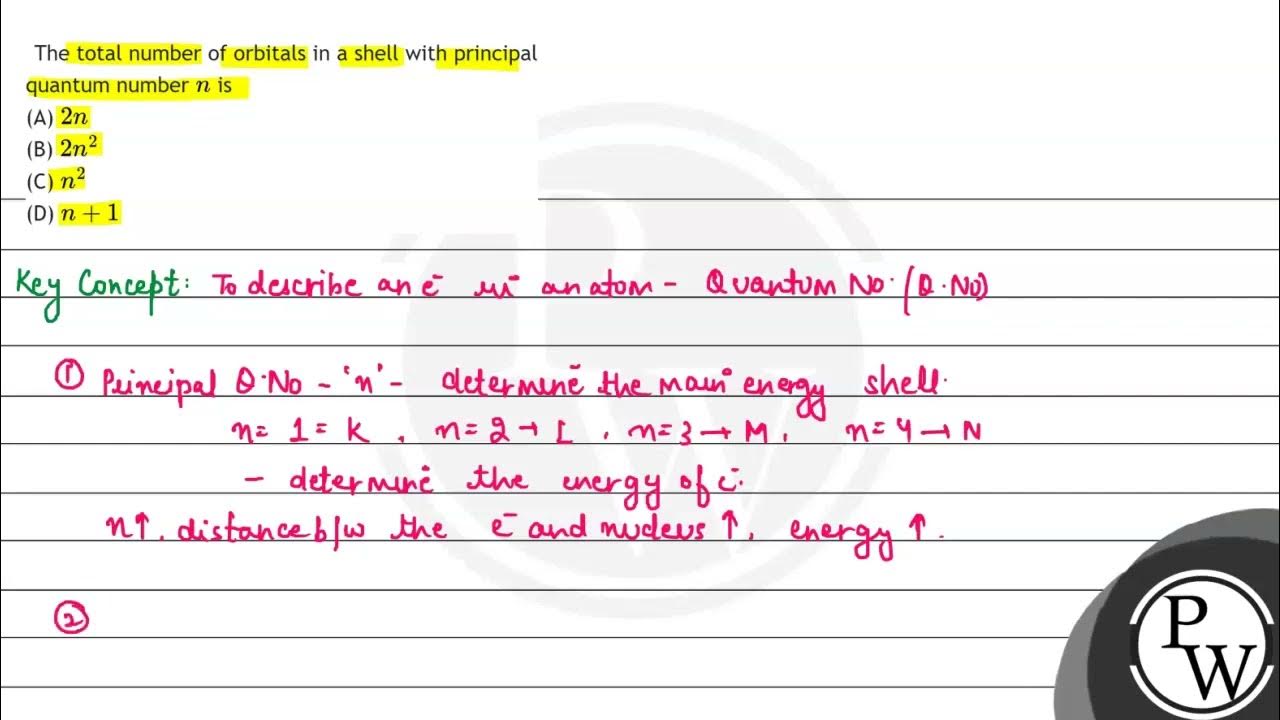 The total number of orbitals in a shell with principal
quantum number n is
(A) 2n
(B) 2n²
(C) n²
(D) n + 1
Key Concept: To describe an e⁻ in an atom - Quantum No. (Q.No)
① Principal Q.No - 'n' - determine the main energy shell.
n = 1 = K, n = 2 → L, n = 3 → M, n = 4 → N
- determine the energy of e⁻.
n↑, distance b/w the e⁻ and nucleus ↑, energy ↑.
②
PW
PW